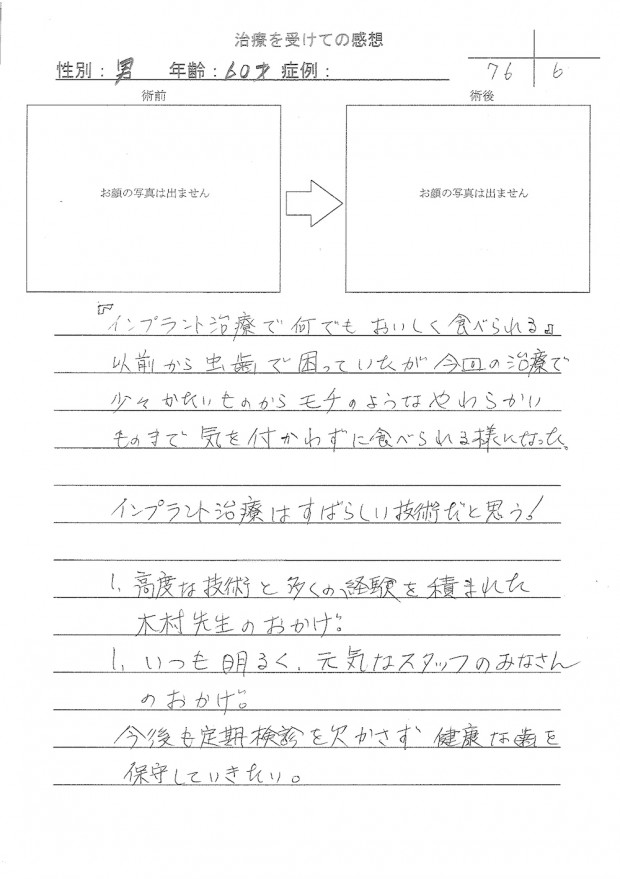 治療を受けての感想
性別：男　年齢：60才 症例：
76 6
術前
術後
お顔の写真は出ません
お顔の写真は出ません
『インプラント治療で何でもおいしく食べられる』
以前から虫歯で困っていたが今回の治療で
少々かたいものからモチのようなやわらかい
ものまで気を付かわずに食べられる様になった。
インプラント治療はすばらしい技術だと思う！
1. 高度な技術と多くの経験を積まれた
木村先生のおかげ。
1. いつも明るく、元気なスタッフのみなさん
のおかげ。
今後も定期検診を欠かさず 健康な歯を
保守していきたい。